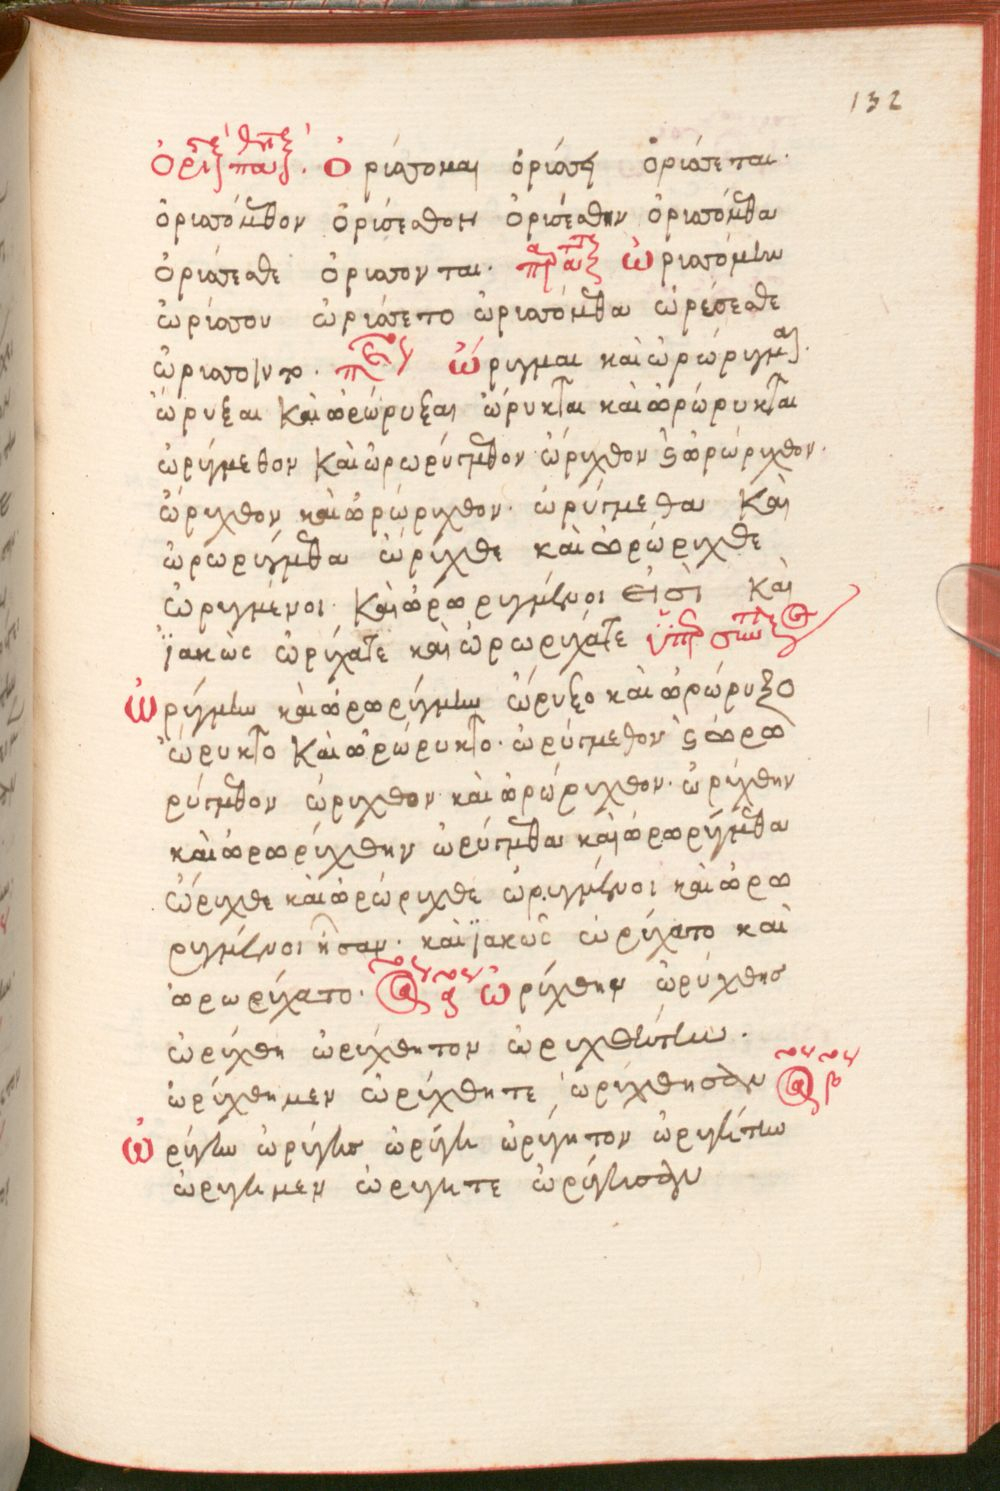 132
Ὁρι παθ. Ὀρύσσομαι ὀρύσσῃ ὀρύσσεται·
ὀρυσσόμεθον ὀρύσσεσθον ὀρύσσεσθον ὀρυσσόμεθα
ὀρύσσεσθε ὀρύσσονται· παρατ ὠρυσσόμην
ὠρύσσου ὠρύσσετο ὠρυσσόμεθα ὠρύσσεσθε
ὠρύσσοντο· ὤρυγμαι καὶ ὠρώρυγμαι·
ὤρυξαι καὶ ὠρώρυξαι ὤρυκται καὶ ὠρώρυκται
ὠρύγμεθον καὶ ὠρωρύγμεθον ὤρυχθον ϗ ὠρώρυχθον·
ὤρυχθον καὶ ὠρώρυχθον· ὠρύγμεθα καὶ
ὠρωρύγμεθα ὤρυχθε καὶ ὠρώρυχθε
ὠρυγμένοι καὶ ὠρωρυγμένοι εἰσὶ καὶ
ἰακῶς ὠρύχατε καὶ ὠρωρύχατε ὑπερσυν
ὠρύγμην καὶ ὠρωρύγμην ὤρυξο καὶ ὠρώρυξο
ὤρυκτο καὶ ὠρώρυκτο· ὠρύγμεθον ϗ ὠρω
ρύγμεθον ὤρυχθον καὶ ὠρώρυχθον· ὠρύχθην
καὶ ὠρωρύχθην ὠρύγμεθα καὶ ὠρωρύγμεθα
ὤρυχθε καὶ ὠρώρυχθε ὠρυγμένοι καὶ ὠρω
ρυγμένοι ἦσαν· καὶ ἰακῶς ὠρύχατο καὶ
ὠρωρύχατο· ὠρύχθην ὠρύχθης
ὠρύχθη ὠρύχθητον ὠρυχθήτην·
ὠρύχθημεν ὠρύχθητε ὠρύχθησαν
ὠρύγην ὠρύγης ὠρύγη ὠρύγητον ὠρυγήτην
ὠρύγημεν ὠρύγητε ὠρύγησαν